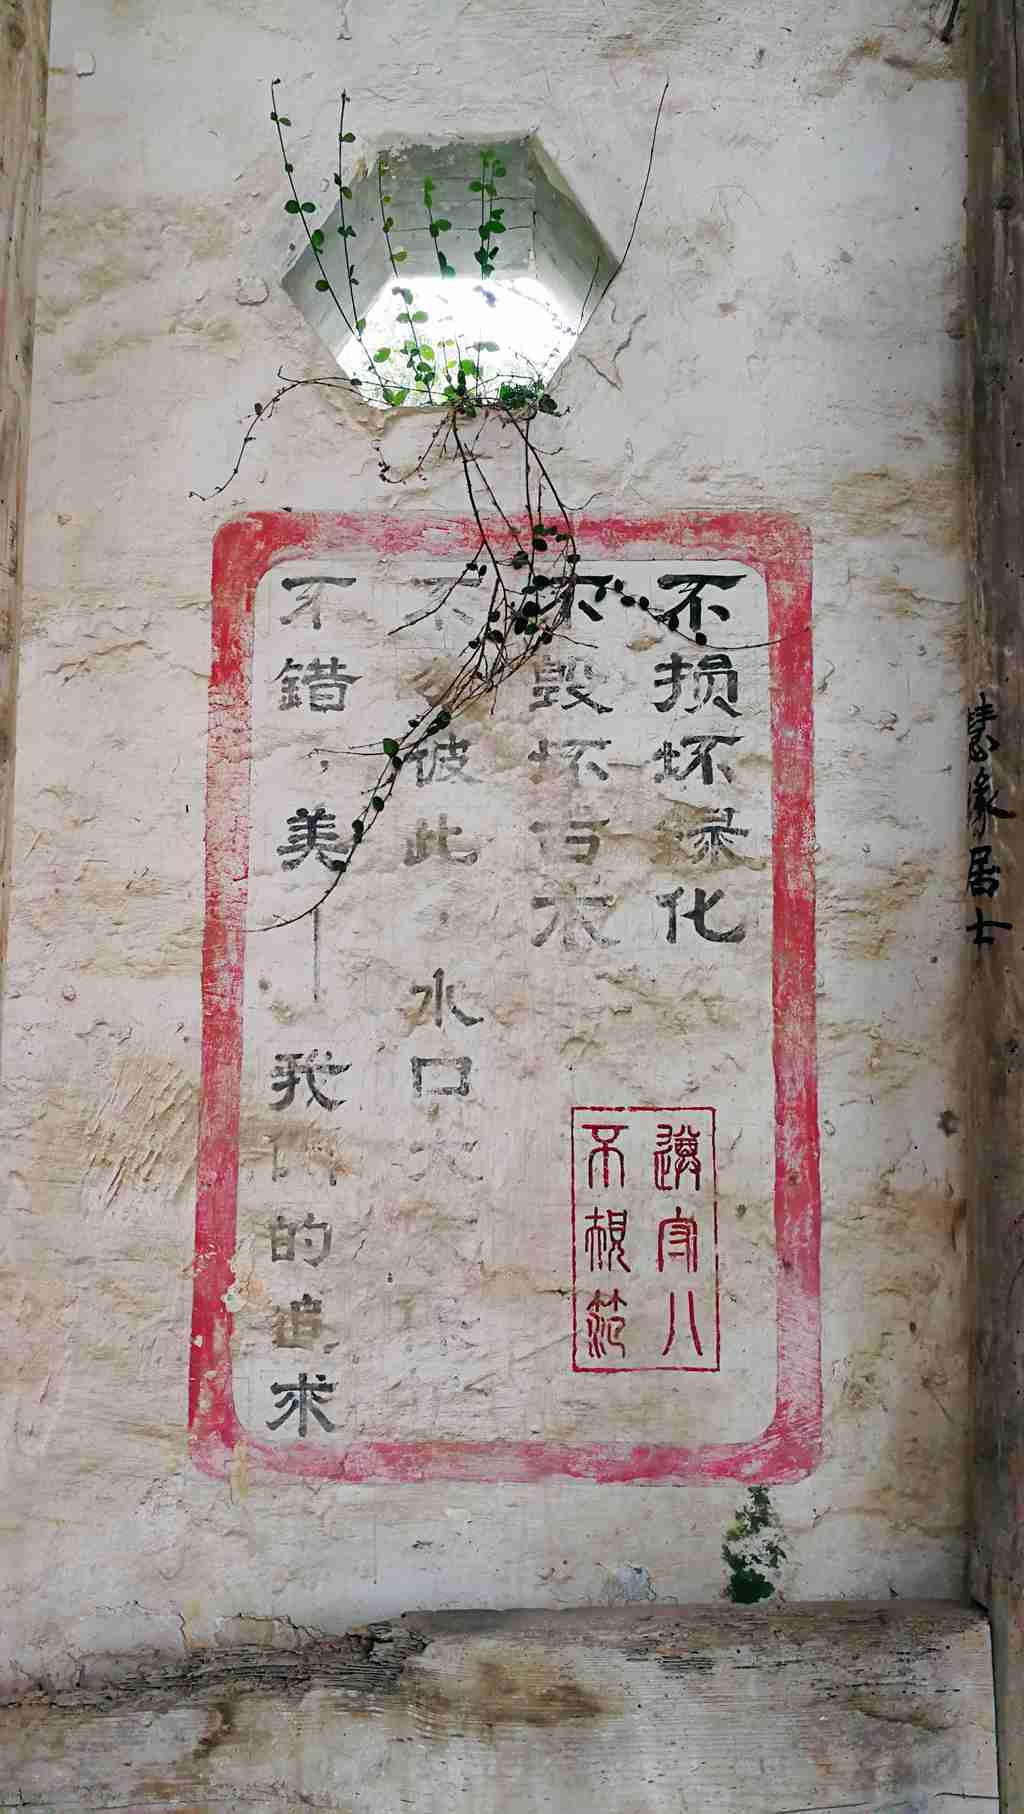 不损坏绿化
不毁坏古木
不分彼此，水口
不错，美——我们的追求
遵守八
不规范
居士